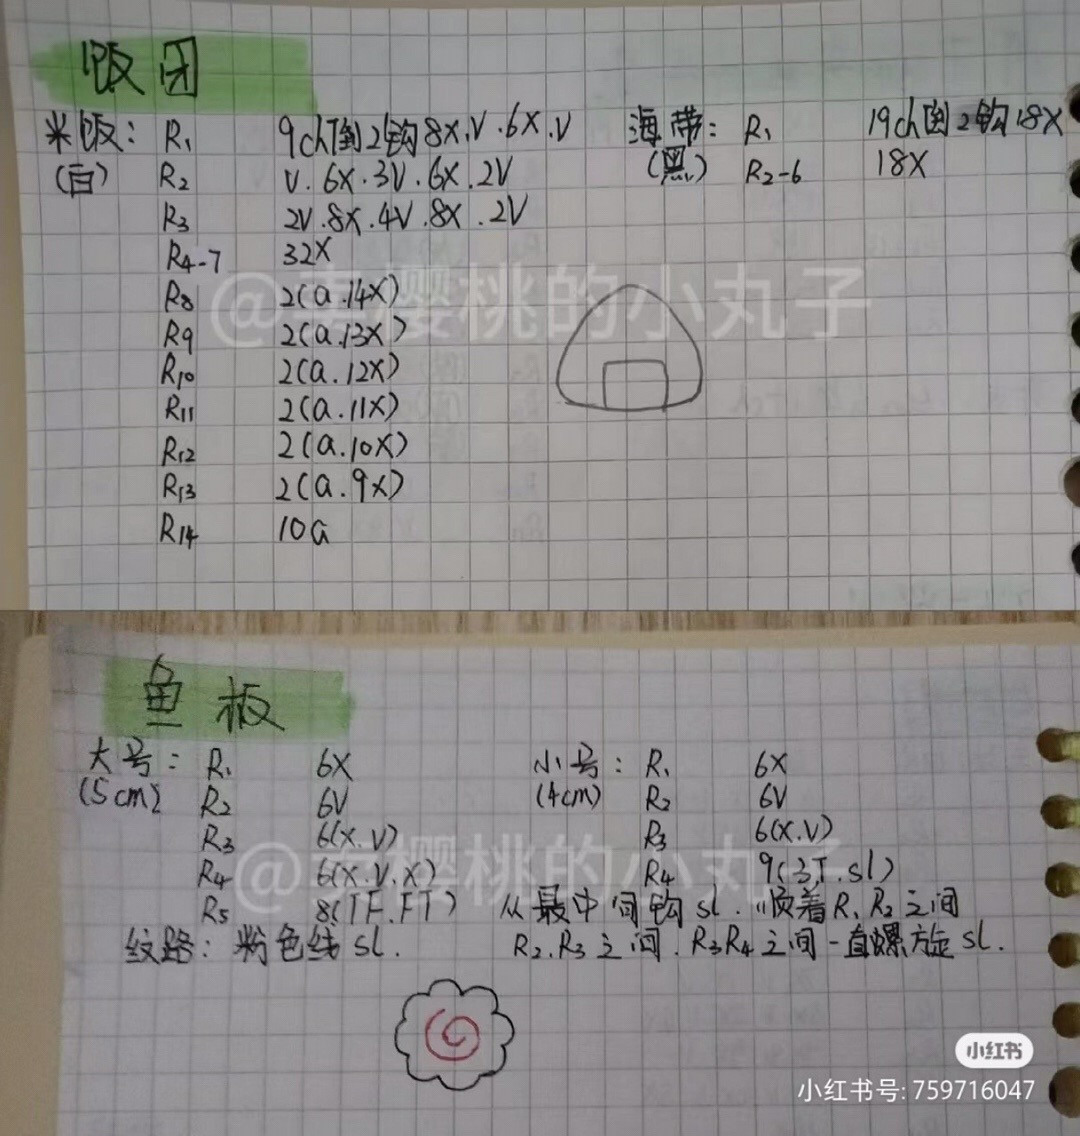 饭团
米饭： R1 9ch倒2钩8X.V.6X.V
(白) R2 V.6X.3V.6X.2V
R3 2V.8X.4V.8X.2V
R4-7 32X
R8 2(a.14X)
R9 2(a.13X)
R10 2(a.12X)
R11 2(a.11X)
R12 2(a.10X)
R13 2(a.9X)
R14 10a
海带： R1 19ch倒2钩18X
(黑) R2-6 18X
樱桃的小丸子
鱼板
大号： R1 6X
(5cm) R2 6V
R3 6(X.V)
R4 6(X.V.X)
R5 8(TF.FT)
小号： R1 6X
(4cm) R2 6V
R3 6(X.V)
R4 9(3T.sl)
纹路：粉色线sl. 从最中间钩sl.顺着R1R2之间
R2.R3之间.R3R4之间一直螺旋sl.
樱桃的小丸子
小红书
小红书号: 759716047